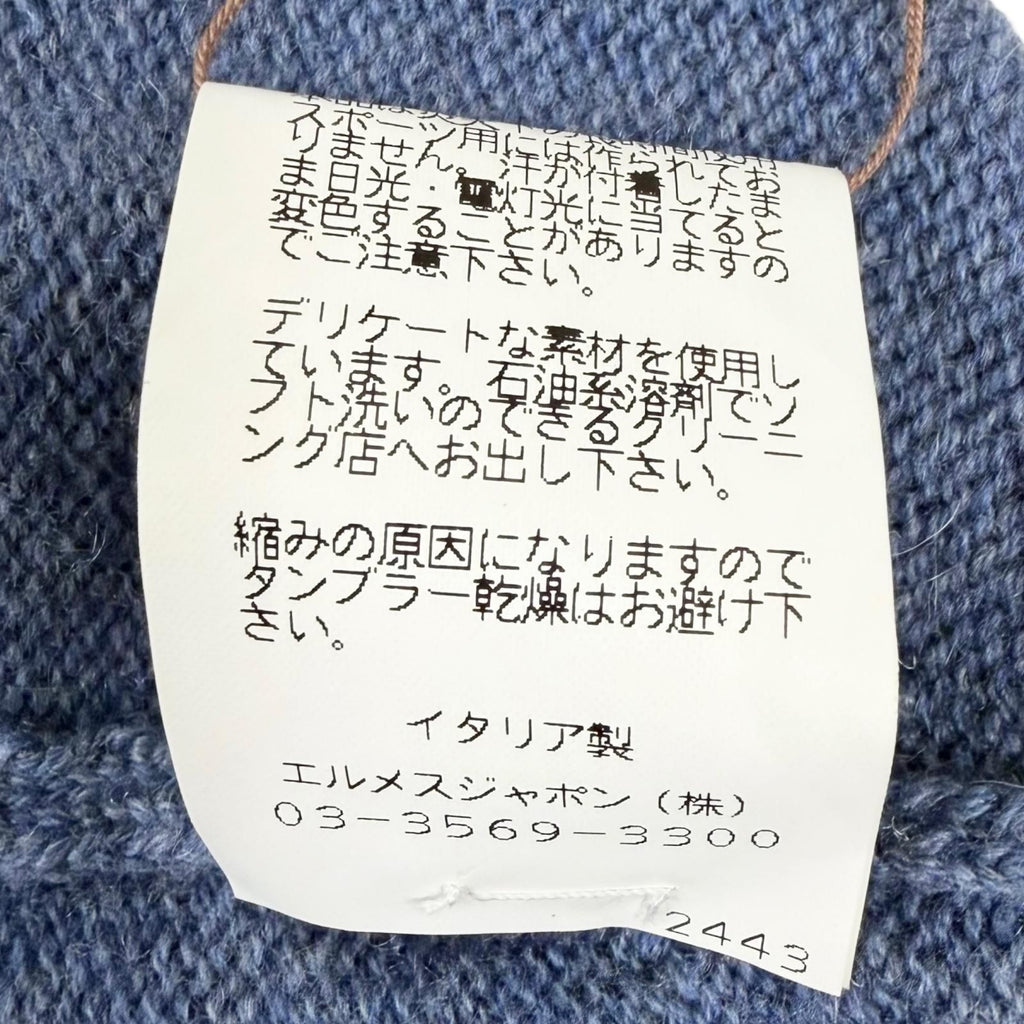 スポーツ用には作られてお
りません。汗が付着したま
ま日光・電灯光に当たると
変色することがありますの
でご注意下さい。
デリケートな素材を使用し
ています。石油系溶剤でソ
フト洗いのできるクリーニ
ング店へお出し下さい。
縮みの原因になりますので
タンブラー乾燥はお避け下
さい。
イタリア製
エルメスジャポン（株）
03-3569-3300
2443